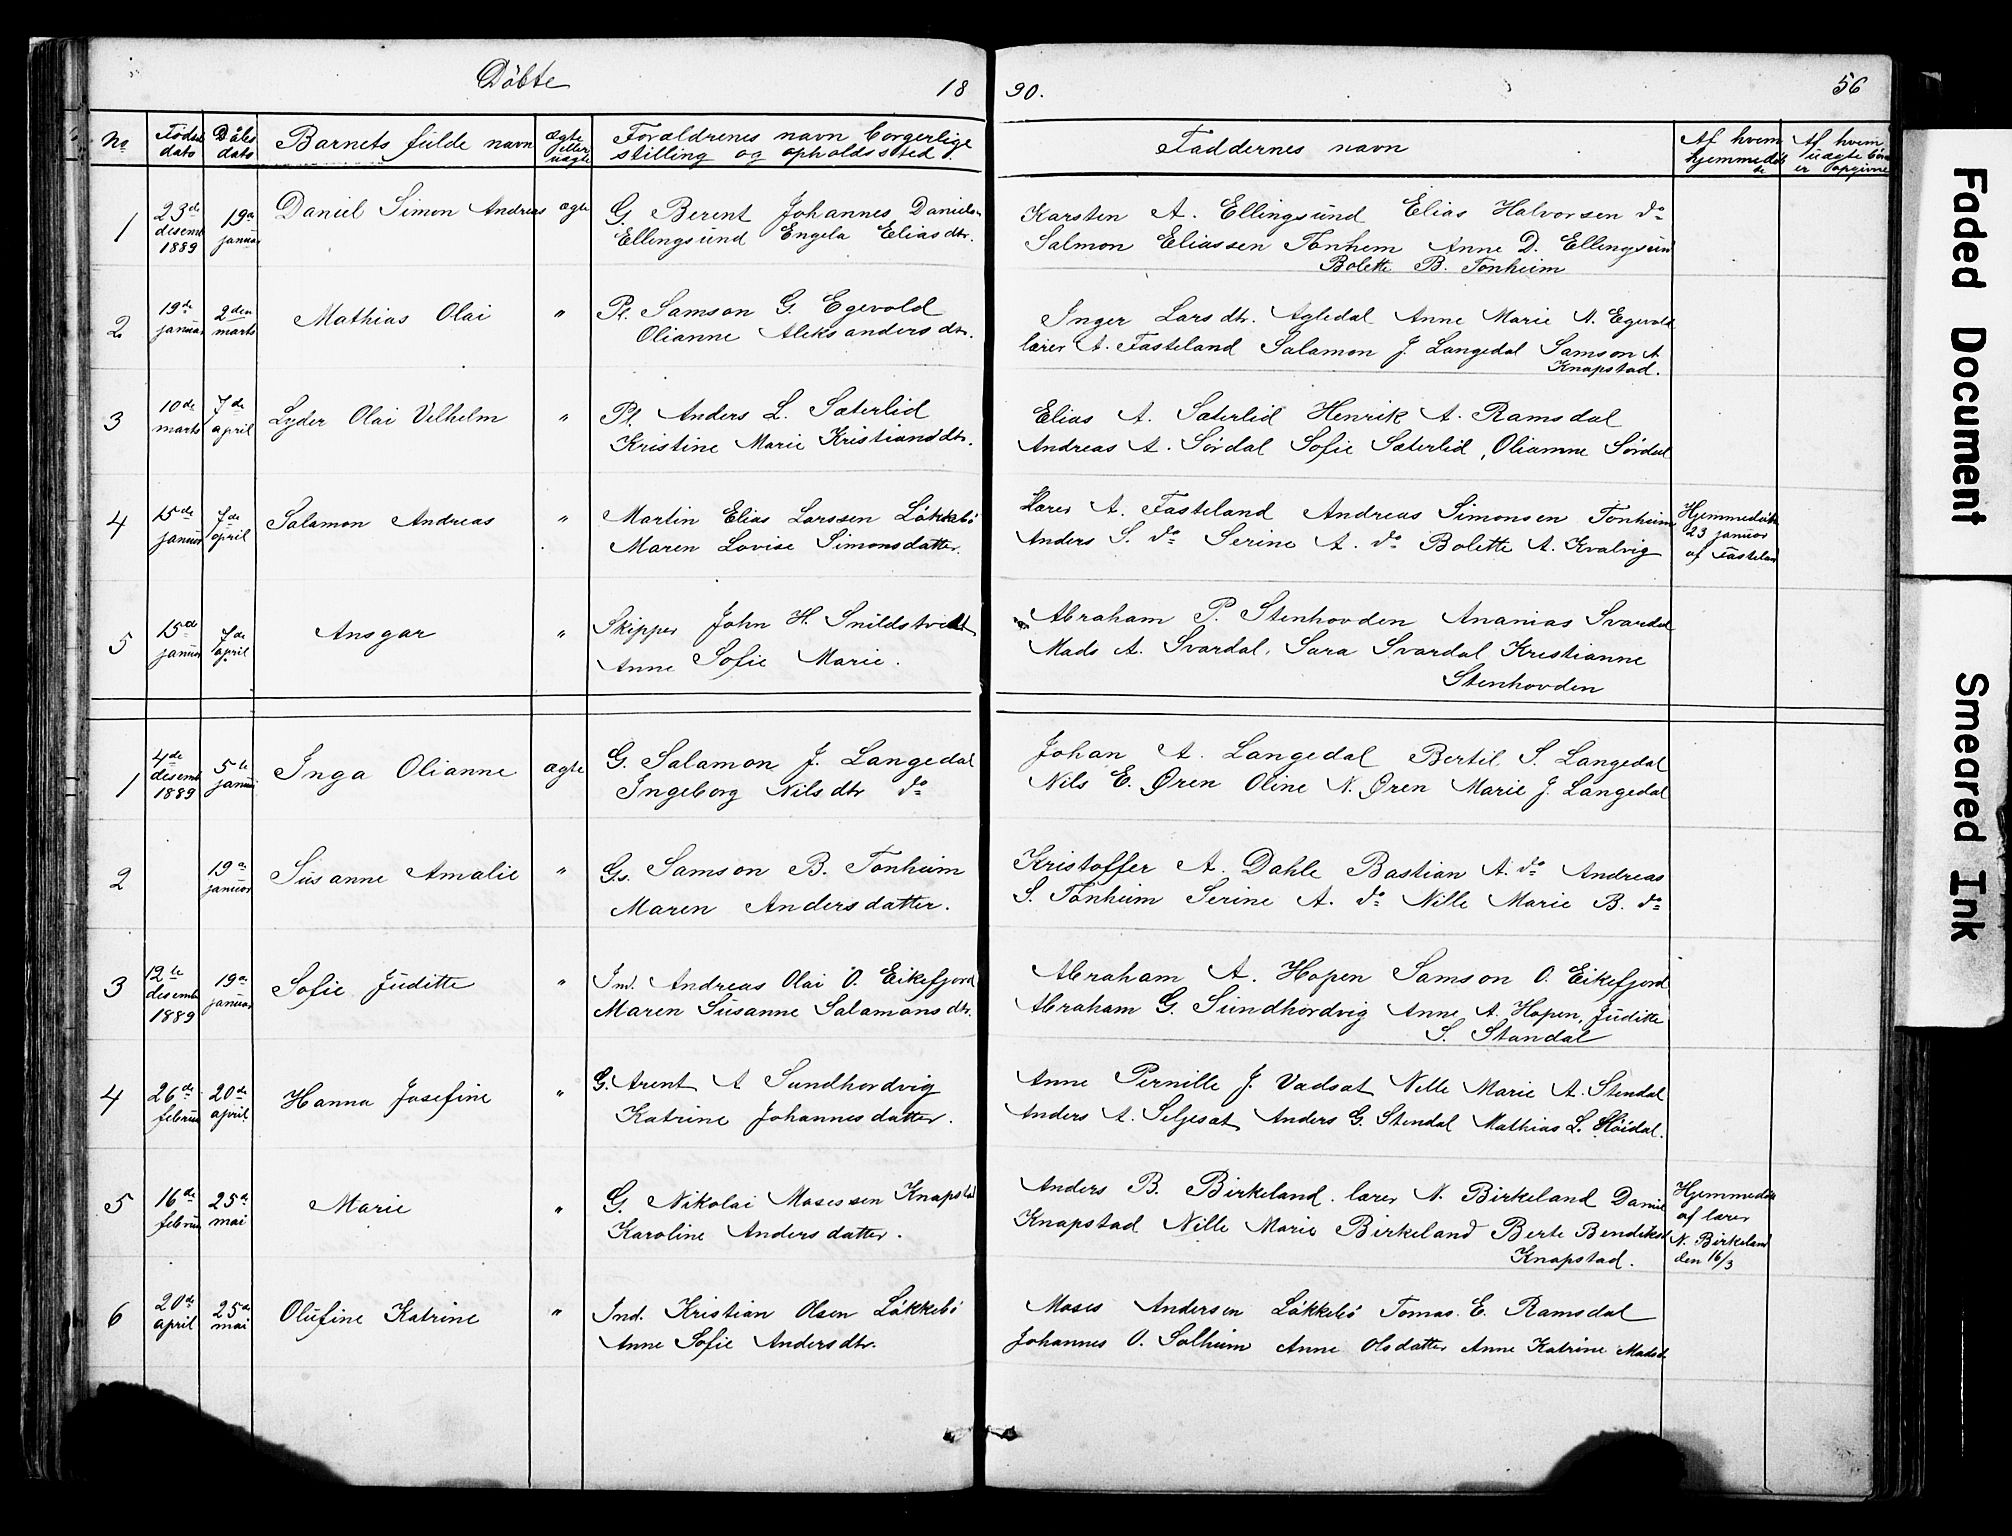 Döbte 18 90. 56
No Födsels dato Dåbs dato Barnets fulde navn ægte eller uægte Forældrenes navn borgerlige stilling og opholdssted. Faddernes navn Af hvem hjemmedöbte Af hvem uægte börn er opgivne
1 23de desemb 1889 19a januar Daniel Simon Andreas ægte G Berent Johannes Daniels. Karsten A. Ellingsund Elias Halvorsen do
Ellingsund Engela Eliasdtr. Salmon Eliassen Tonhem Anne D. Ellingsund
Bolette B. Tonheim
2 19de januar 2den marts Mathias Olai " Pl. Samson G. Egevold Inger Larsdtr. Agledal Anne Marie N. Egevold
Olianne Aleksandersdtr. lærer A. Fasteland Salamon J. Langedal Samson A.
Knapstad.
3 10de marts 7de april Lyder Olai Vilhelm " Pl. Anders L. Sæterlid Elias A. Sæterlid Henrik A. Ramsdal
Kristine Marie Kristiansdtr. Andreas A. Sördal Sofie Sæterlid, Olianne Sördal
4 15de januar 7de april Salamon Andreas " Martin Elias Larssen Lökkebö Lærer A. Fasteland Andreas Simonsen Tonheim Hjemmedöbt
Maren Lovise Simonsdatter. Anders S. do Serine A. do Bolette A. Kvalvig 23 januar
af Fasteland
5 15de januar 7de april Ansgar " Skipper John H. Snildstvedt Abraham P. Stenhovden Ananias Svardal
Anne Sofie Marie. Mads A. Svardal, Sara Svardal Kristianne
Stenhovden
1 4de desemb 1889 5te januar Inga Olianne ægte G. Salamon J. Langedal Johan A. Langedal Bertil S. Langedal
Ingeborg Nilsdtr do Nils E. Øren Oline N. Øren Marie J. Langedal
2 19a januar Susanne Amalie " Gs. Samson B. Tonheim Kristoffer A. Dahle Bastian A. do Andreas
Maren Andersdatter. S. Tonheim Serine A. do Nille Marie B. do
3 12te desemb 1889 19a januar Sofie Juditte " Ind. Andreas Olai O. Eikefjord Abraham A. Hopen Samson O. Eikefjord
Maren Susanne Salamonsdtr. Abraham G. Sundhordvig Anne A. Hopen, Juditte
S. Standal
4 26de februar 20de april Hanna Josefine " G. Arent A Sundhordvig Anne Pernille J. Vadsat Nille Marie A. Stendal
Katrine Johannesdatter. Anders A. Seljesat Anders G. Stendal Mathias L. Höidal.
5 16de februar 25a mai Marie " G. Nikolai Mosessen Knapstad Anders B. Birkeland. lærer N. Birkeland Daniel Hjemmedöbt
Karoline Andersdatter. Knapstad Nille Marie Birkeland Berte Bendiksd af lærer
Knapstad. N. Birkeland
den 16/3
6 20de april 25de mai Olufine Katrine " Ind. Kristian Olsen Lökkebö Moses Andersen Lökkebö Tomas E. Ramsdal
Anne Sofie Andersdtr. Johannes O. Solheim Anne Olsdatter Anne Katrine Madsd.
Faded Document
Smeared Ink